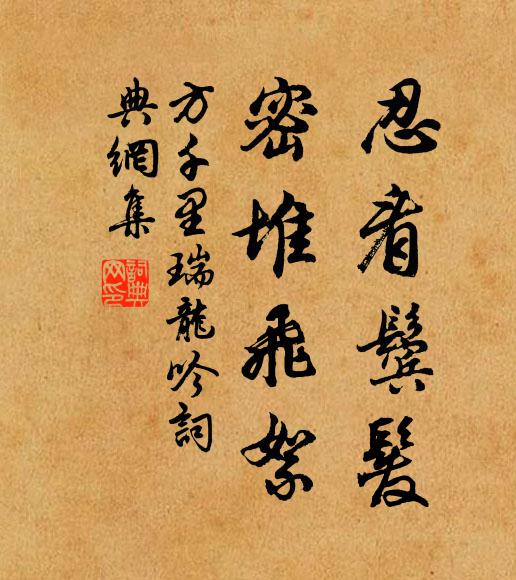 忍看鬢髮
密堆飛絮
方千里瑞龍吟詞
典網集
詞典
网印